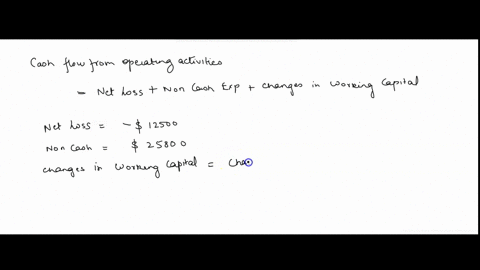 Cash flow from operating activities
= Net Loss + Non Cash Exp + changes in Working Capital
Net Loss = - $ 12500
Non Cash = $ 25800
changes in Working Capital = Cha